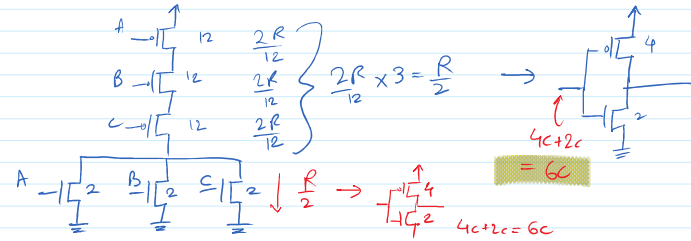 A 12 2R/12
B 12 2R/12 } 2R/12 × 3 = R/2 → 4
C 12 2R/12 2
4C+2C
= 6C
A 2 B 2 C 2 ↓ R/2 → 4
2 4C+2C=6C